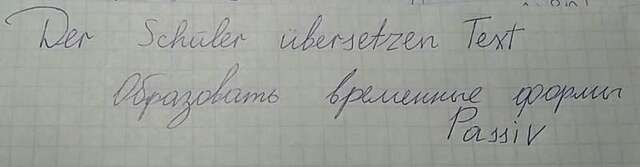 Der Schüler übersetzen Text
Образовать временные формы
Passiv